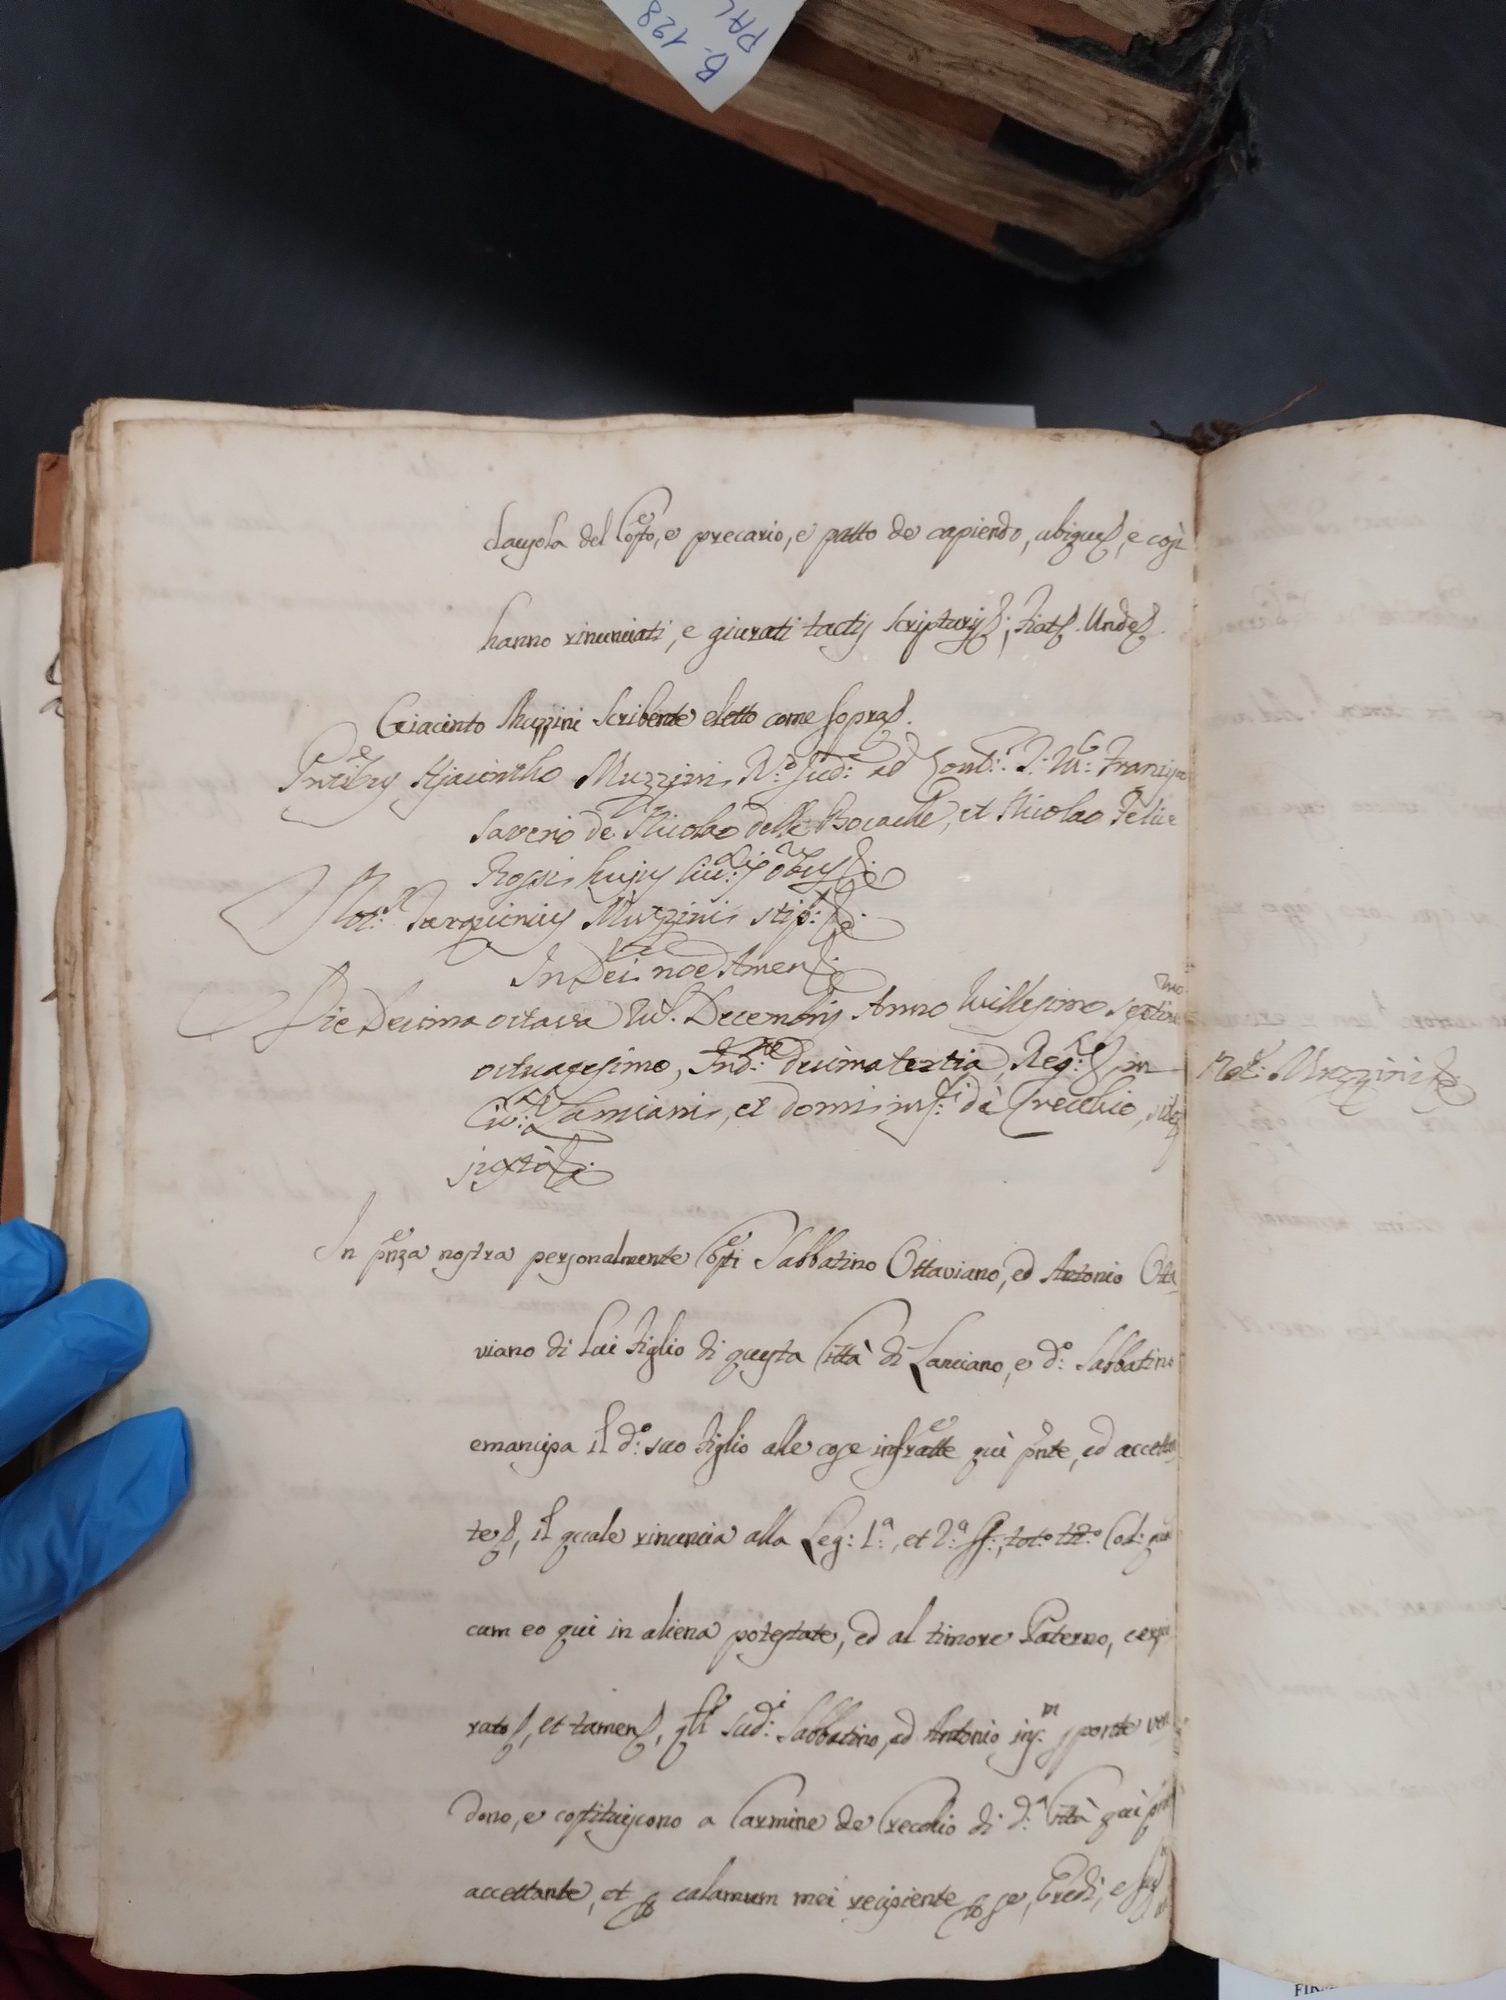 B. 128
PAL
clausola del Costo, e precario, e patto de capiendo, ubique, e così
hanno rinunciati, e giurati tactis scripturis; Fiat. Unde
Giacinto Muzzini scribente eletto come sopra.
Pntibus Hjacintho Muzzini R.º Jud: ad Cont: D: M: Franisco
Saverio de Nicolao delle Bocache, et Nicolao Felice
Rossi hujus Civ: tbus
Not: Tarquinius Muzzini stip:
In Dei noe Amen
Die Decima octava M. Decembris Anno Millesimo septin.mo
octuagesimo, Ind: decimatertia, Reg: in
Civ: Lanciani, et domi inf: de Crecchio, sitoq
juxtà
Not: Muzzini
In pnza nostra personalmente Costi Sabbatino Ottaviano, ed Antonio Otta
viano di lui figlio di questa Città di Lanciano, e d.º Sabbatino
emancipa il d.º suo figlio alle cose infratte quì pnte, ed accettan
te, il quale rinuncia alla Leg: 1.ª, et 2.ª ff:, tot.º tit.º Cod: quod
cum eo qui in aliena potestate, ed al timore Paterno, cer
rato, et tamen, qli sud.i Sabbatino, ed Antonio ins.m sponte ven
dono, e costituiscono a Carmine de Crecchio di d.ª Città quì pnte
accettante, et p calamum mei recipiente p se, Eredi, e
FIRM